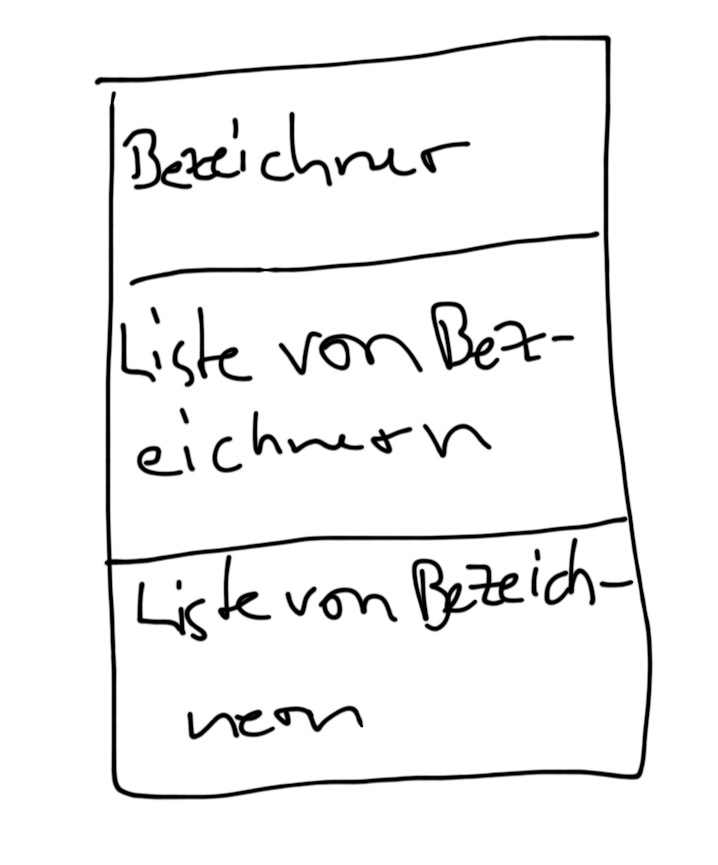 Bezeichner
Liste von Bez-
eichnern
Liste von Bezeich-
nern